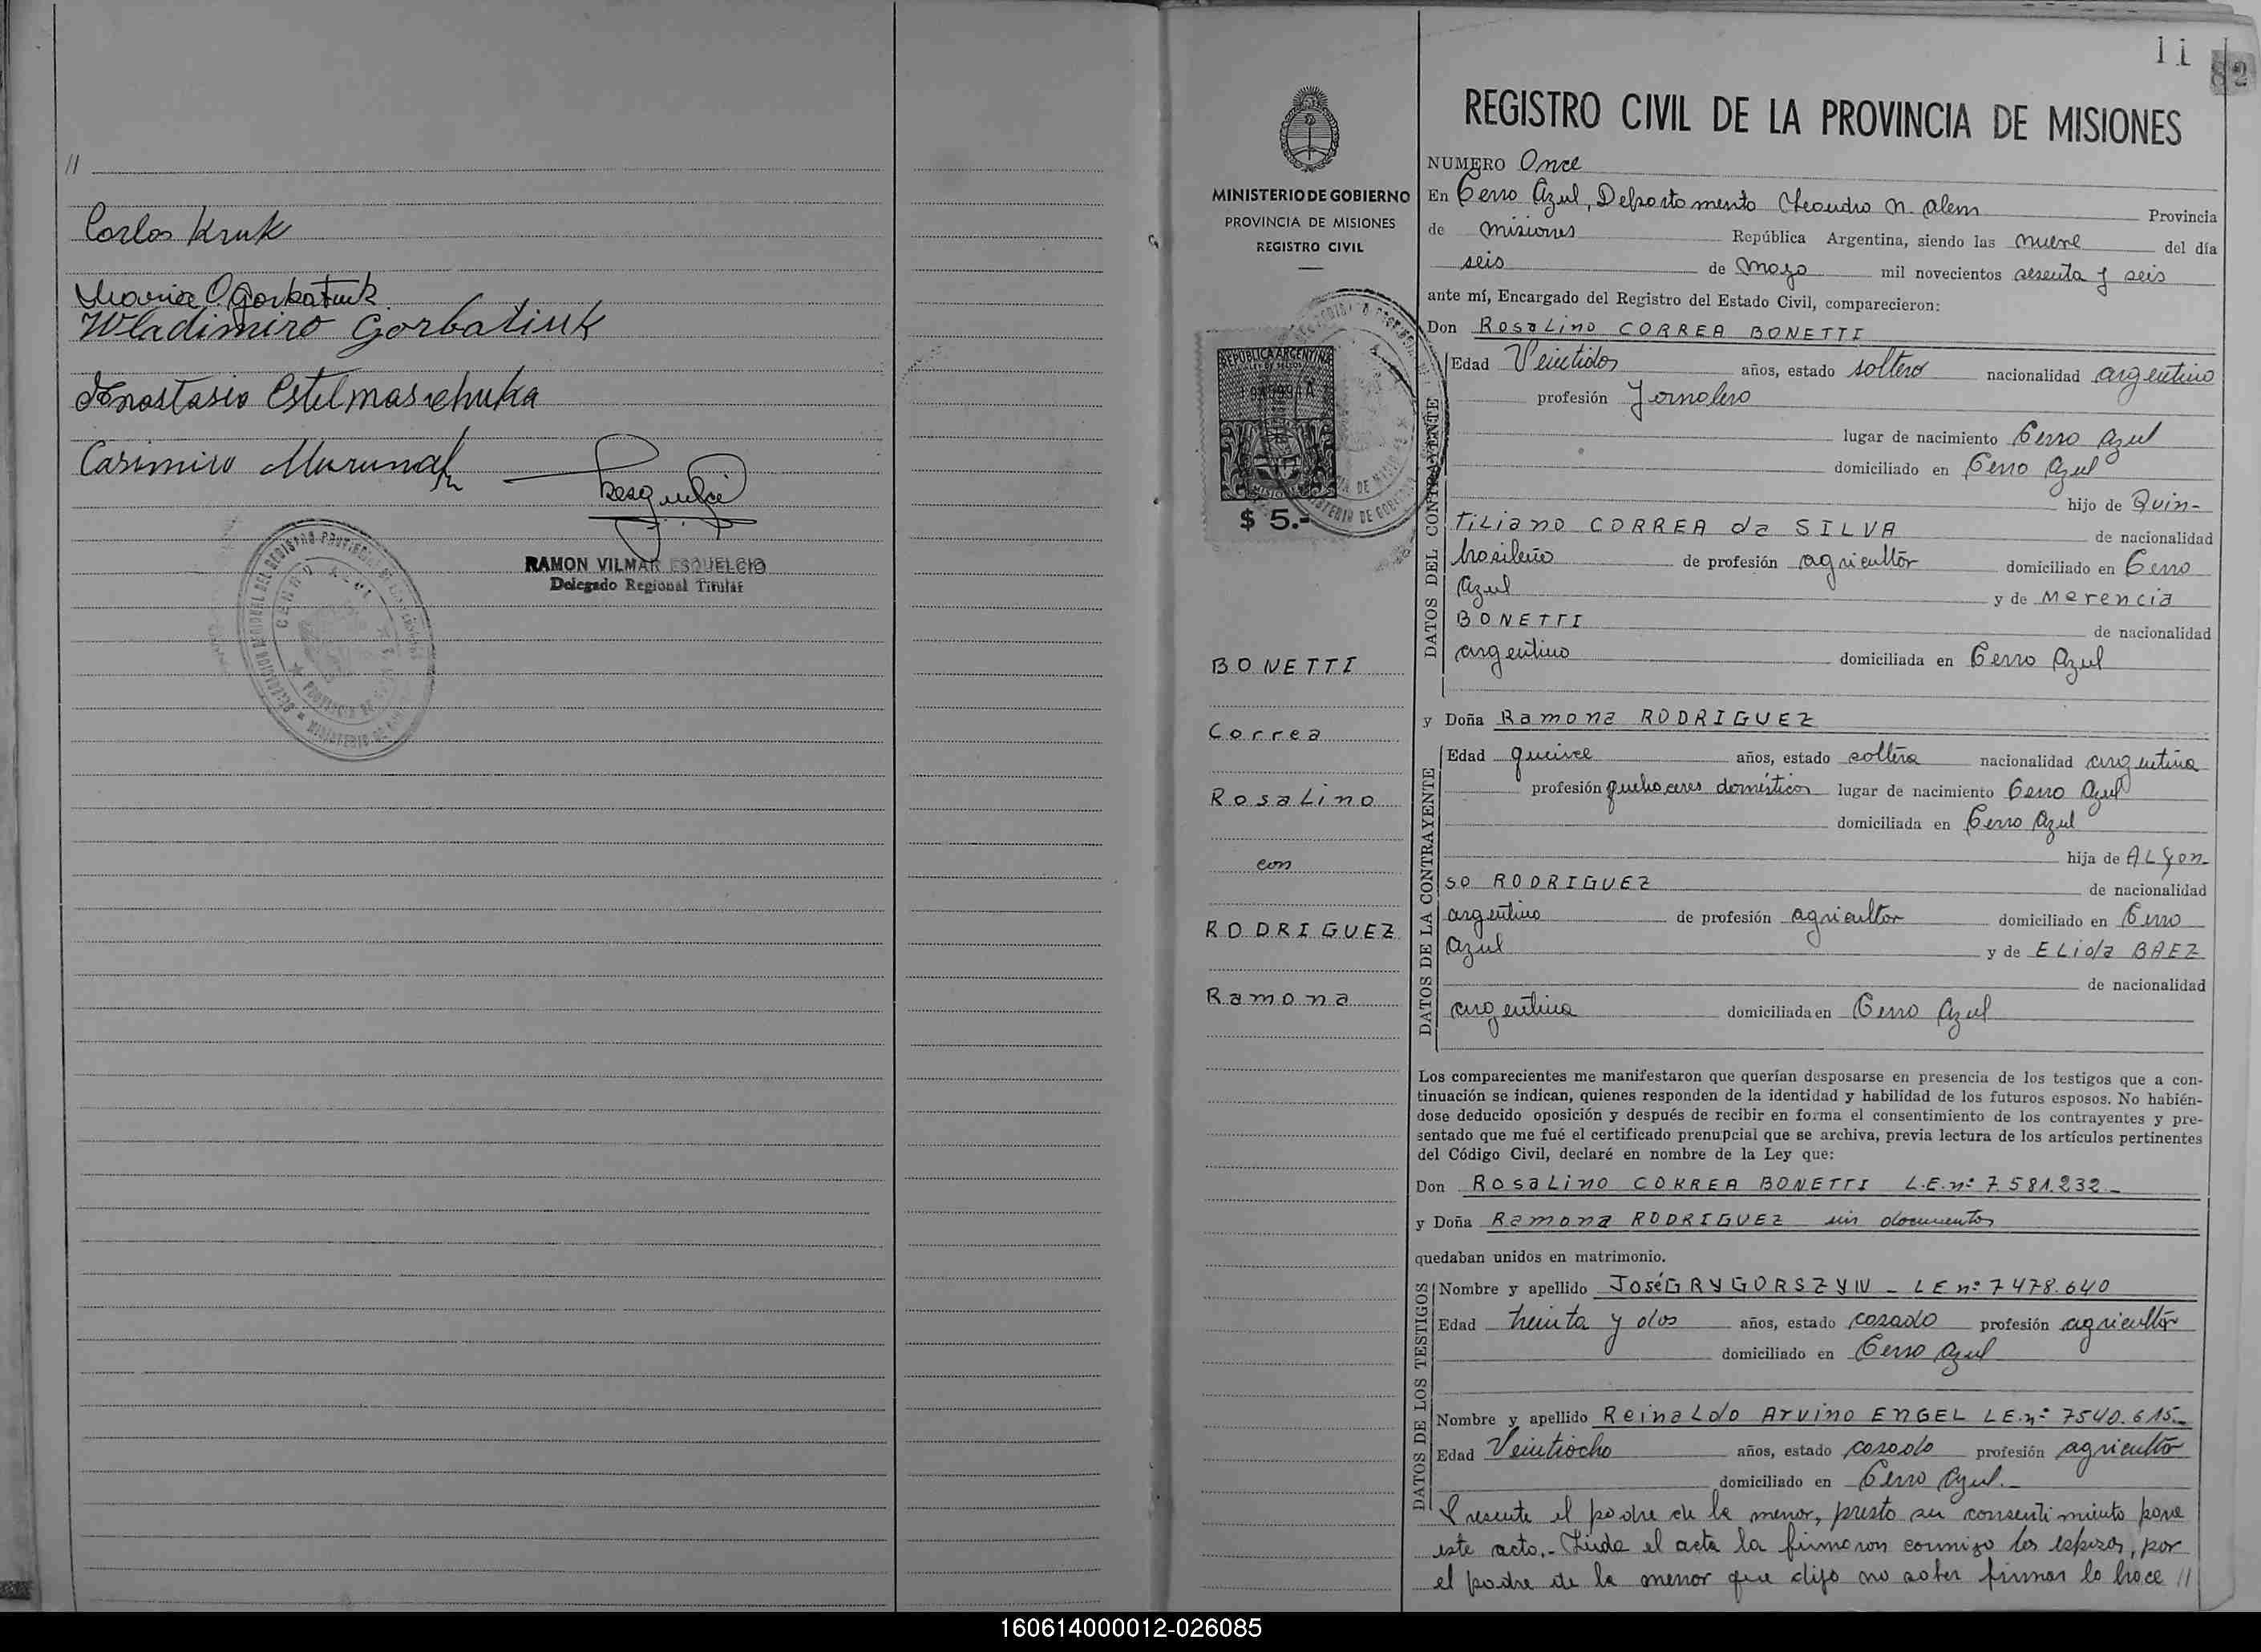 //
Carlos Kruk
Maria O. Gorbatiuk
Wladimiro Gorbatiuk
Anastasio Estelmaschuka
Casimiro
RAMON VILMAR ESQUELCIO
Delegado Regional Titular
11
82
REGISTRO CIVIL DE LA PROVINCIA DE MISIONES
MINISTERIO DE GOBIERNO
PROVINCIA DE MISIONES
REGISTRO CIVIL
REPUBLICA ARGENTINA
$ 5.-
BONETTI
Correa
Rosalino
con
RODRIGUEZ
Ramona
NUMERO Once
En Cerro Azul, Departamento Leandro N. Alem Provincia
de Misiones República Argentina, siendo las nueve del día
seis de Mayo mil novecientos sesenta y seis
ante mí, Encargado del Registro del Estado Civil, comparecieron:
Don Rosalino CORREA BONETTI
DATOS DEL CONTRAYENTE
Edad Veintidos años, estado soltero nacionalidad argentino
profesión Jornalero
lugar de nacimiento Cerro Azul
domiciliado en Cerro Azul
hijo de Quin-
tiliano CORREA da SILVA de nacionalidad
brasileño de profesión agricultor domiciliado en Cerro
Azul y de Merencia
BONETTI de nacionalidad
argentino domiciliada en Cerro Azul
y Doña Ramona RODRIGUEZ
DATOS DE LA CONTRAYENTE
Edad quince años, estado soltera nacionalidad argentina
profesión quehaceres domésticos lugar de nacimiento Cerro Azul
domiciliada en Cerro Azul
hija de Alfon-
so RODRIGUEZ de nacionalidad
argentino de profesión agricultor domiciliado en Cerro
Azul y de Elida BAEZ
de nacionalidad
argentina domiciliada en Cerro Azul
Los comparecientes me manifestaron que querían desposarse en presencia de los testigos que a con-
tinuación se indican, quienes responden de la identidad y habilidad de los futuros esposos. No habién-
dose deducido oposición y después de recibir en forma el consentimiento de los contrayentes y pre-
sentado que me fué el certificado prenupcial que se archiva, previa lectura de los artículos pertinentes
del Código Civil, declaré en nombre de la Ley que:
Don Rosalino CORREA BONETTI L.E.nº 7.581.232-
y Doña Ramona RODRIGUEZ sin documentos
quedaban unidos en matrimonio.
DATOS DE LOS TESTIGOS
Nombre y apellido José GRYGORSZYN - LE nº 7478.640
Edad treinta y dos años, estado casado profesión agricultor
domiciliado en Cerro Azul
Nombre y apellido Reinaldo Arvino ENGEL LE.nº 7540.615.-
Edad Veintiocho años, estado casado profesión agricultor
domiciliado en Cerro Azul.-
Presente el padre de la menor, presto su consentimiento para
este acto.- Leida el acta la firmaron conmigo los esposos, por
el padre de la menor que dijo no saber firmar lo hace //
160614000012-026085